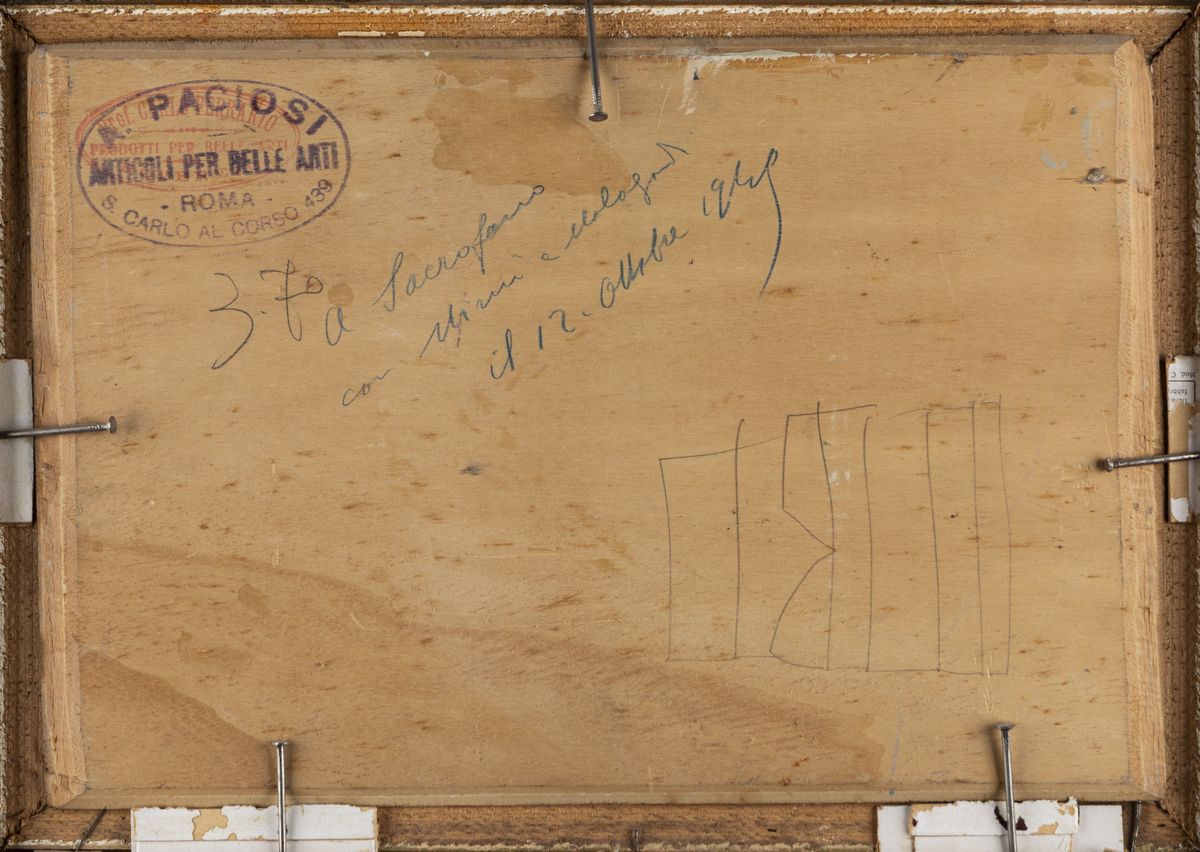 A. PACIOSI
PROF. CARLO FERRARIO
PRODOTTI PER BELLE ARTI
ARTICOLI PER BELLE ARTI
- ROMA -
S. CARLO AL CORSO 439
3.7° a Sacrofano
con e
il 12. Ottobre
Mod. C